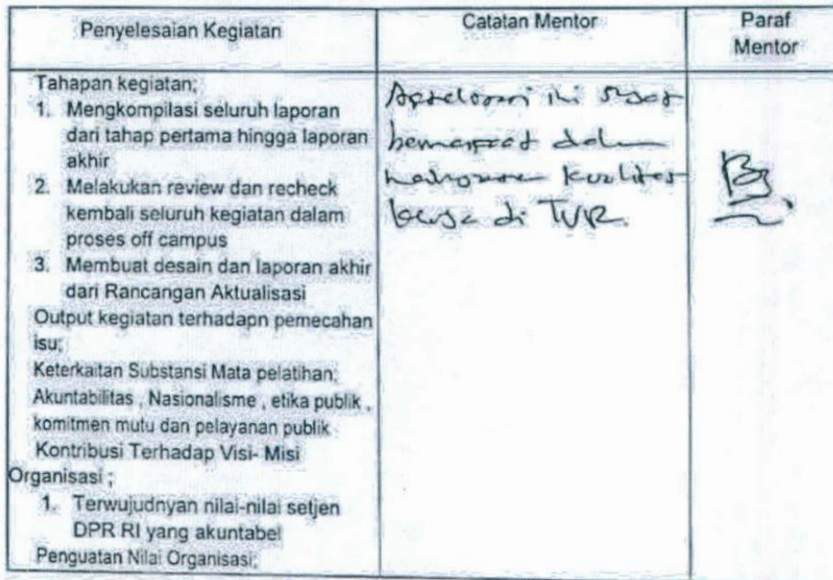 Penyelesaian Kegiatan
Catatan Mentor
Paraf
Mentor
Tahapan kegiatan;
1. Mengkompilasi seluruh laporan
dari tahap pertama hingga laporan
akhir
2. Melakukan review dan recheck
kembali seluruh kegiatan dalam
proses off campus
3. Membuat desain dan laporan akhir
dari Rancangan Aktualisasi
Output kegiatan terhadapn pemecahan
isu;
Keterkaitan Substansi Mata pelatihan;
Akuntabilitas , Nasionalisme , etika publik ,
komitmen mutu dan pelayanan publik
Kontribusi Terhadap Visi- Misi
Organisasi ;
1. Terwujudnyan nilai-nilai setjen
DPR RI yang akuntabel
Penguatan Nilai Organisasi;
ini
dalam
kualitas
kerja di TVR.